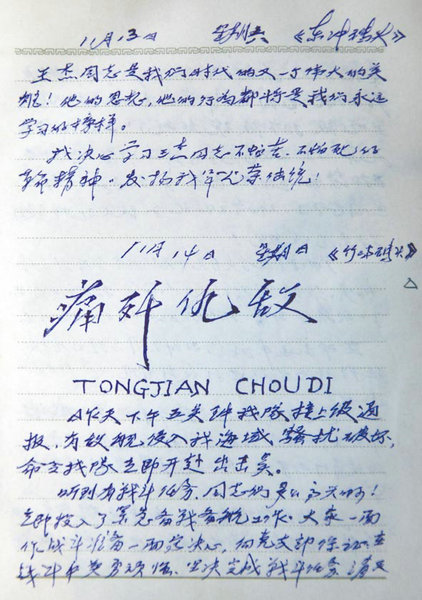 11月13日 星期六 《东冲码头》
王杰同志是我们时代的又一个伟大的英
雄！他的思想，他的行为都将是我们永远
学习的榜样。
我决心学习王杰同志不怕苦、不怕死的
革命精神。发扬我军光荣传统！
11月14日 星期日 《竹 码头》
痛歼仇敌
TONGJIAN CHOUDI
昨天下午五点钟我队接上级通
报，有敌舰侵入我海域，骚扰破坏，
命令我队立即开赴出击点。
听到有战斗任务，同志们多么高兴啊！
立即投入了紧急备战备航工作。大家一面
作战斗准备一面表决心，向党支部保证在
战斗中英勇顽强，坚决完成战斗任务